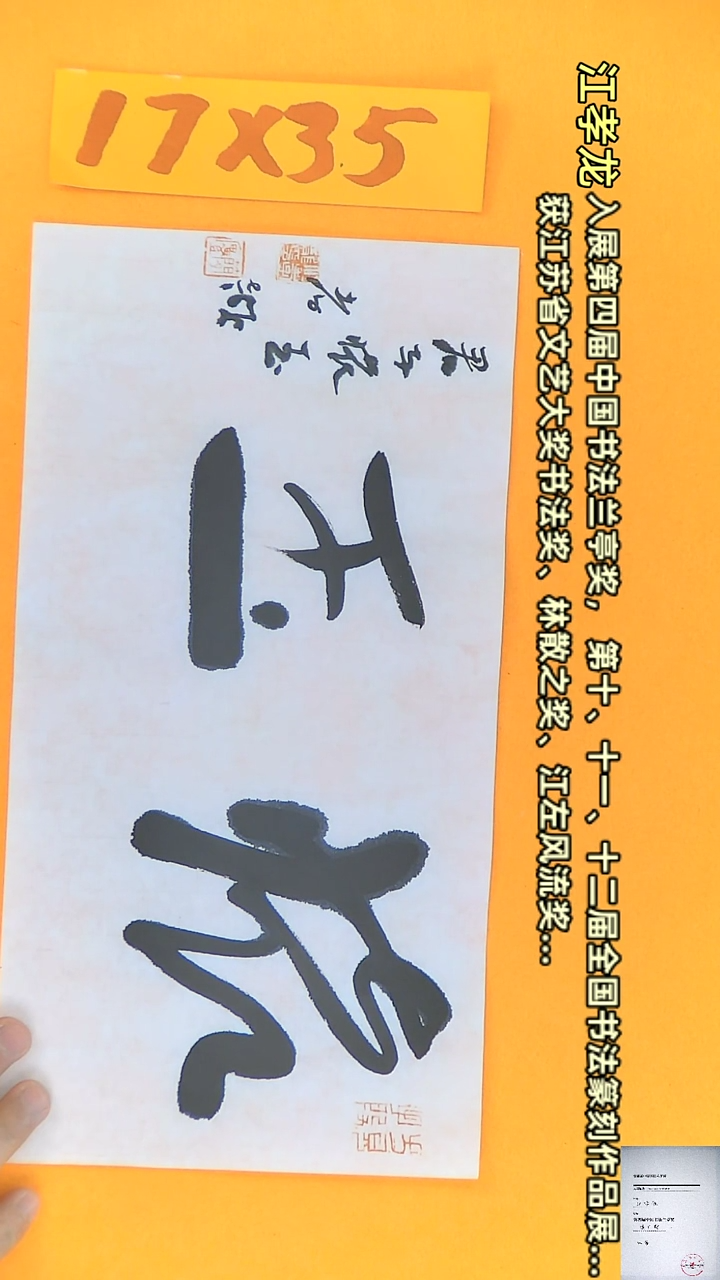 17X35
江孝龙入展第四届中国书法兰亭奖，第十、十一、十二届全国书法篆刻作品展...
获江苏省文艺大奖书法奖、林散之奖、江左风流奖...
懷玉
君子懷玉
孝龍